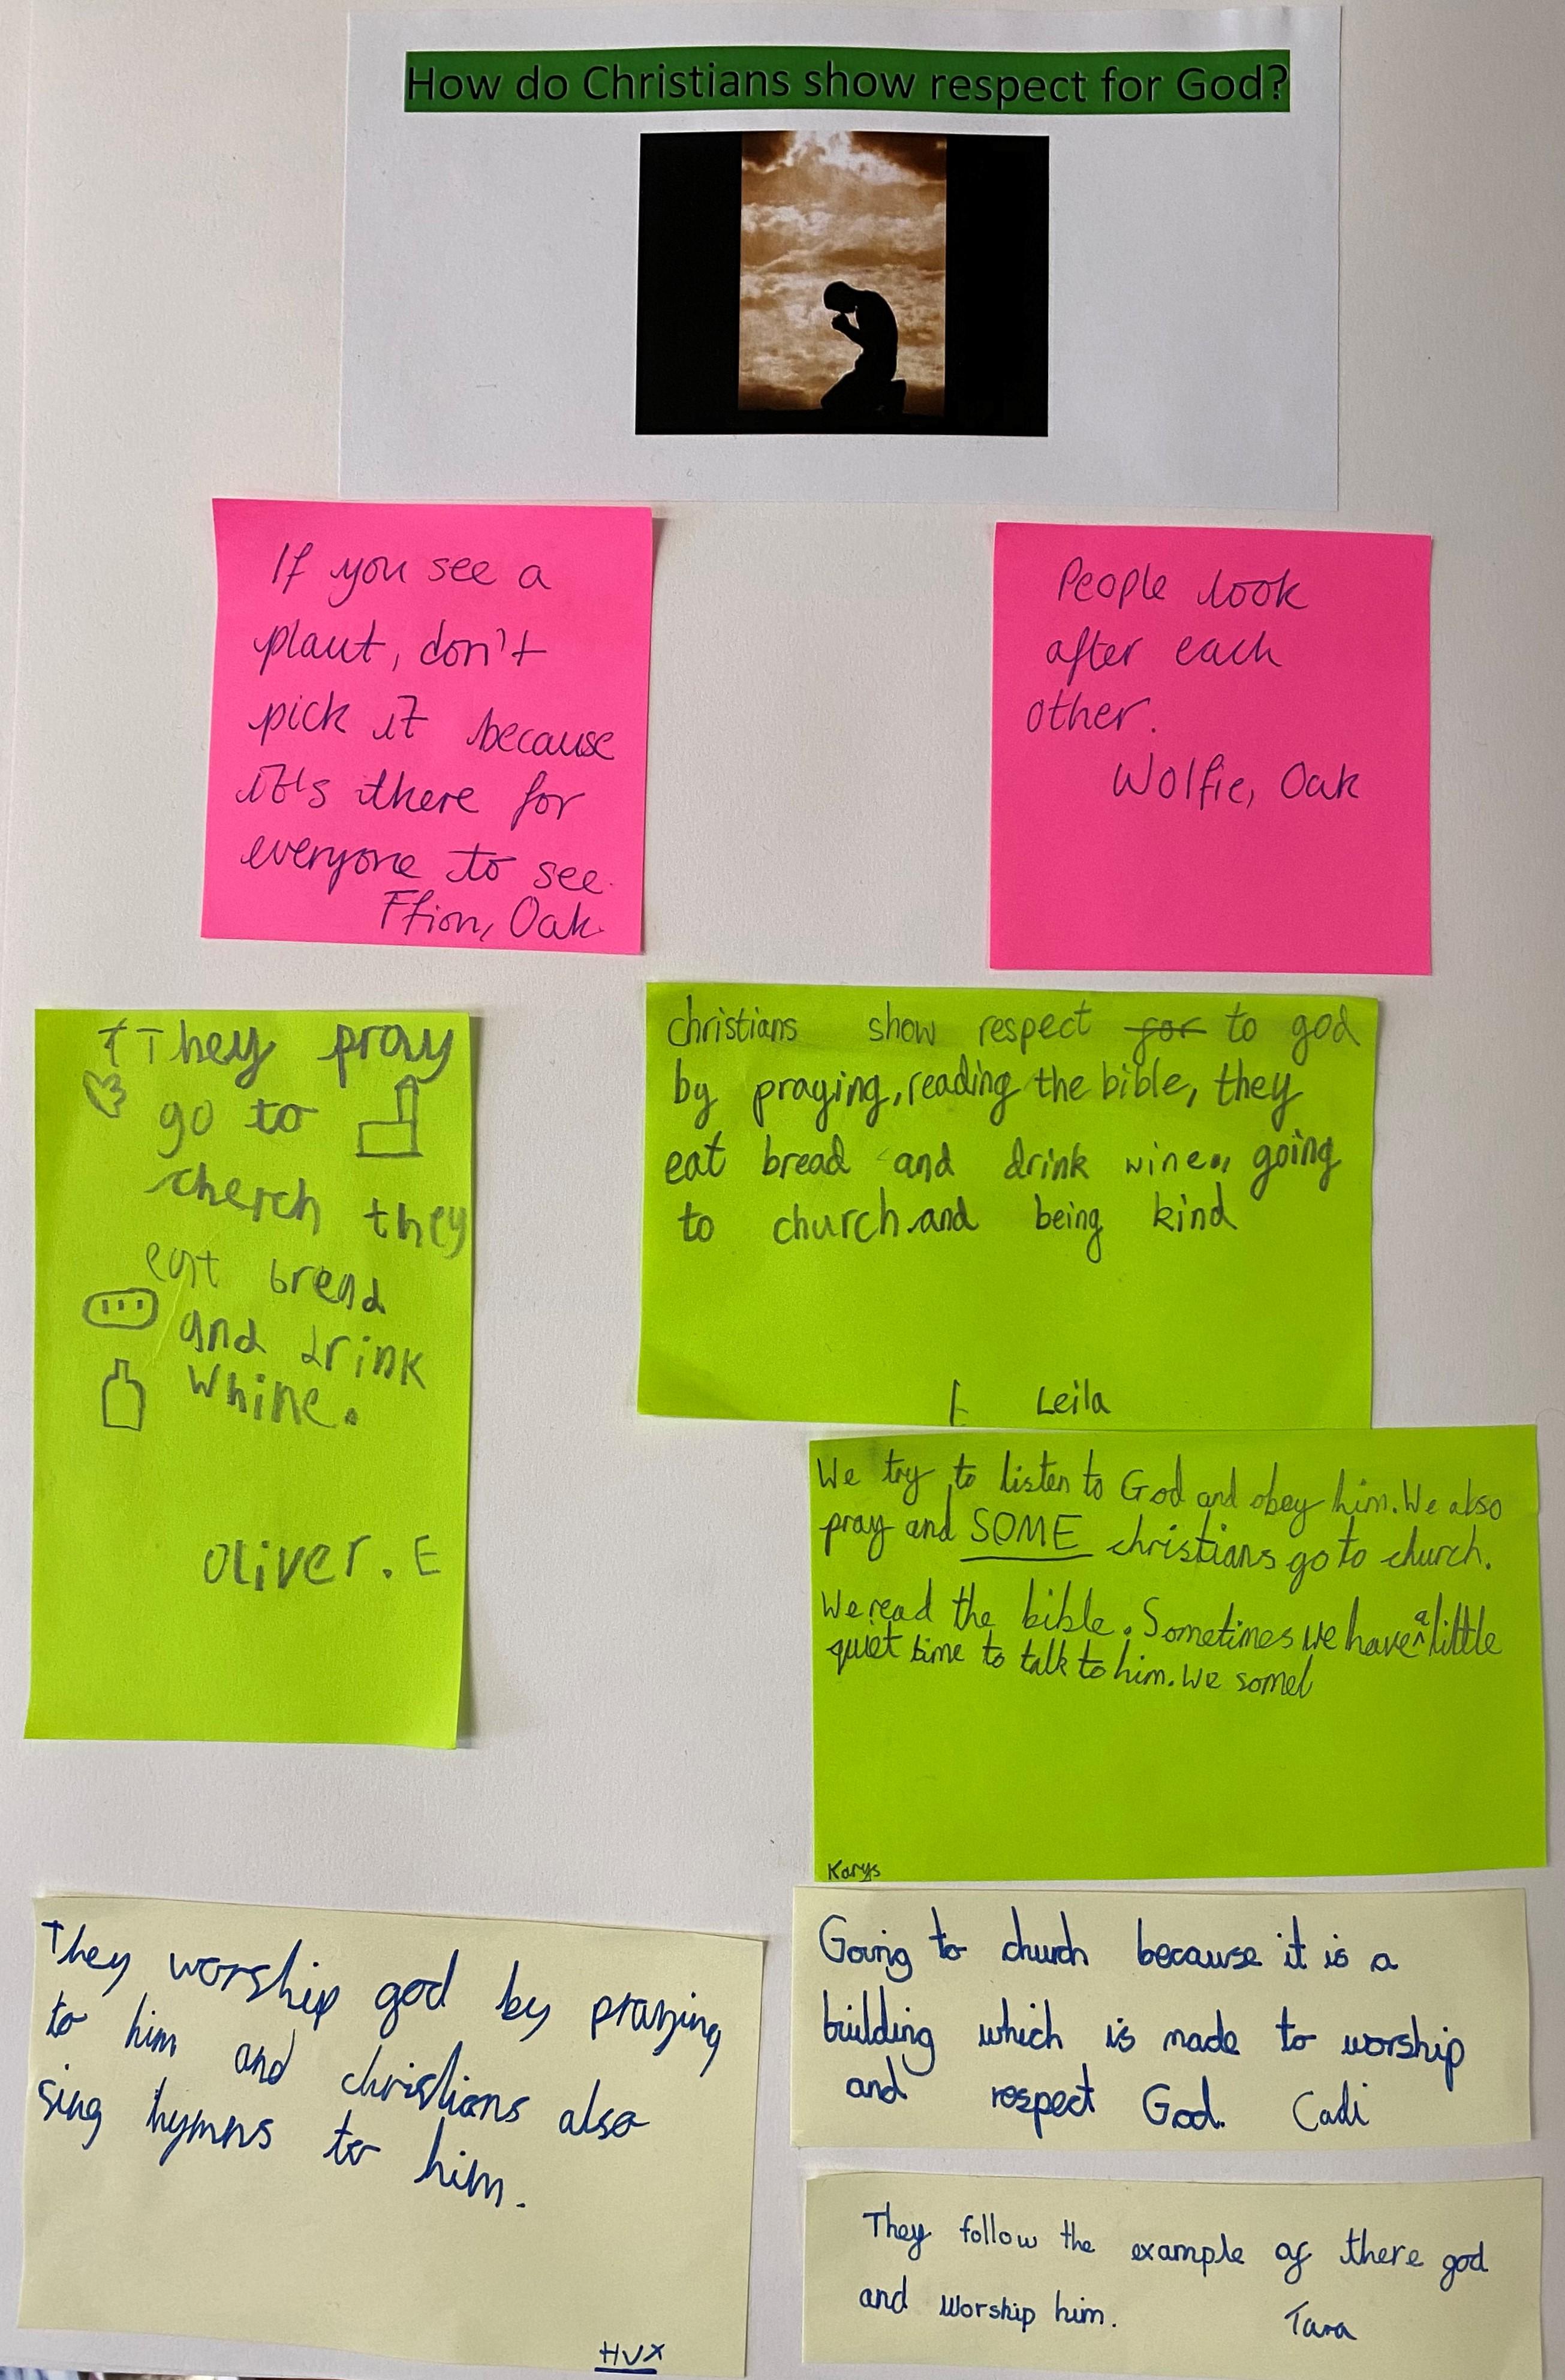 How do Christians show respect for God?
If you see a
plant, don't
pick it because
it's there for
everyone to see.
Ffion, Oak.
People look
after each
other.
Wolfie, Oak
They pray
go to
cherch they
eat bread
and drink
whine.
Oliver. E
christians show respect for to god
by praying, reading the bible, they
eat bread and drink wine, going
to church and being kind
E Leila
We try to listen to God and obey him. We also
pray and SOME christians go to church.
We read the bible. Sometimes we have a little
quiet time to talk to him. We somet
Karys
They worship god by praying
to him and christians also
sing hymns to him.
HVX
Going to church because it is a
building which is made to worship
and respect God. Cadi
They follow the example of there god
and worship him. Tara